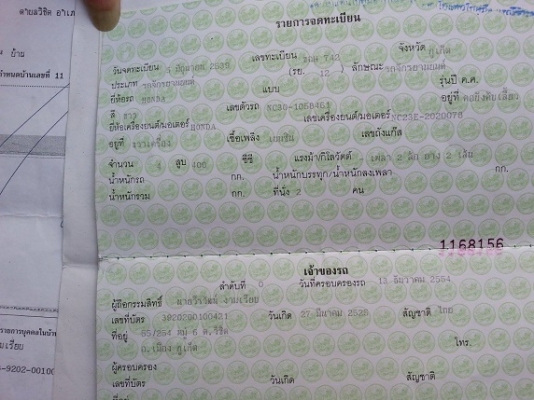 รายการจดทะเบียน
วันจดทะเบียน 5 มิถุนายน 2538 เลขทะเบียน 742 จังหวัด ภูเก็ต
ประเภท รถจักรยานยนต์ (รย. 12 ) ลักษณะ รถจักรยานยนต์
ยี่ห้อรถ HONDA แบบ รุ่นปี ค.ศ.
สี ขาว เลขตัวรถ NC30-1058461 อยู่ที่ คอยึดคันเลี้ยว
ยี่ห้อเครื่องยนต์/มอเตอร์ HONDA เลขเครื่องยนต์/มอเตอร์ NC23E-2020078
อยู่ที่ ขวาเครื่อง เชื้อเพลิง เบนซิน เลขถังแก๊ส
จำนวน 4 สูบ 400 ซีซี แรงม้า/กิโลวัตต์ เพลา 2 ล้อ ยาง 2 เส้น
น้ำหนักรถ กก. น้ำหนักบรรทุก/น้ำหนักลงเพลา กก.
น้ำหนักรวม กก. ที่นั่ง 2 คน
1168156
เจ้าของรถ
ลำดับที่ วันที่ครอบครองรถ 13 ธันวาคม 2554
ผู้ถือกรรมสิทธิ์ งามเรียบ
เลขที่บัตร 3920200100421 วันเกิด 27 มีนาคม 2520 สัญชาติ ไทย
ที่อยู่ 55/254 หมู่ 6 ต.วิชิต
อ.เมือง ภูเก็ต โทร.
ผู้ครอบครอง
เลขที่บัตร วันเกิด สัญชาติ
ที่อยู่
บ้าน
กำหนดบ้านเลขที่ 11
-9202-00100